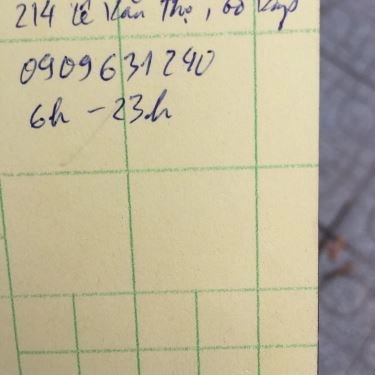 214 Lê Văn Thọ, Gò Vấp
0909631240
6h - 23h